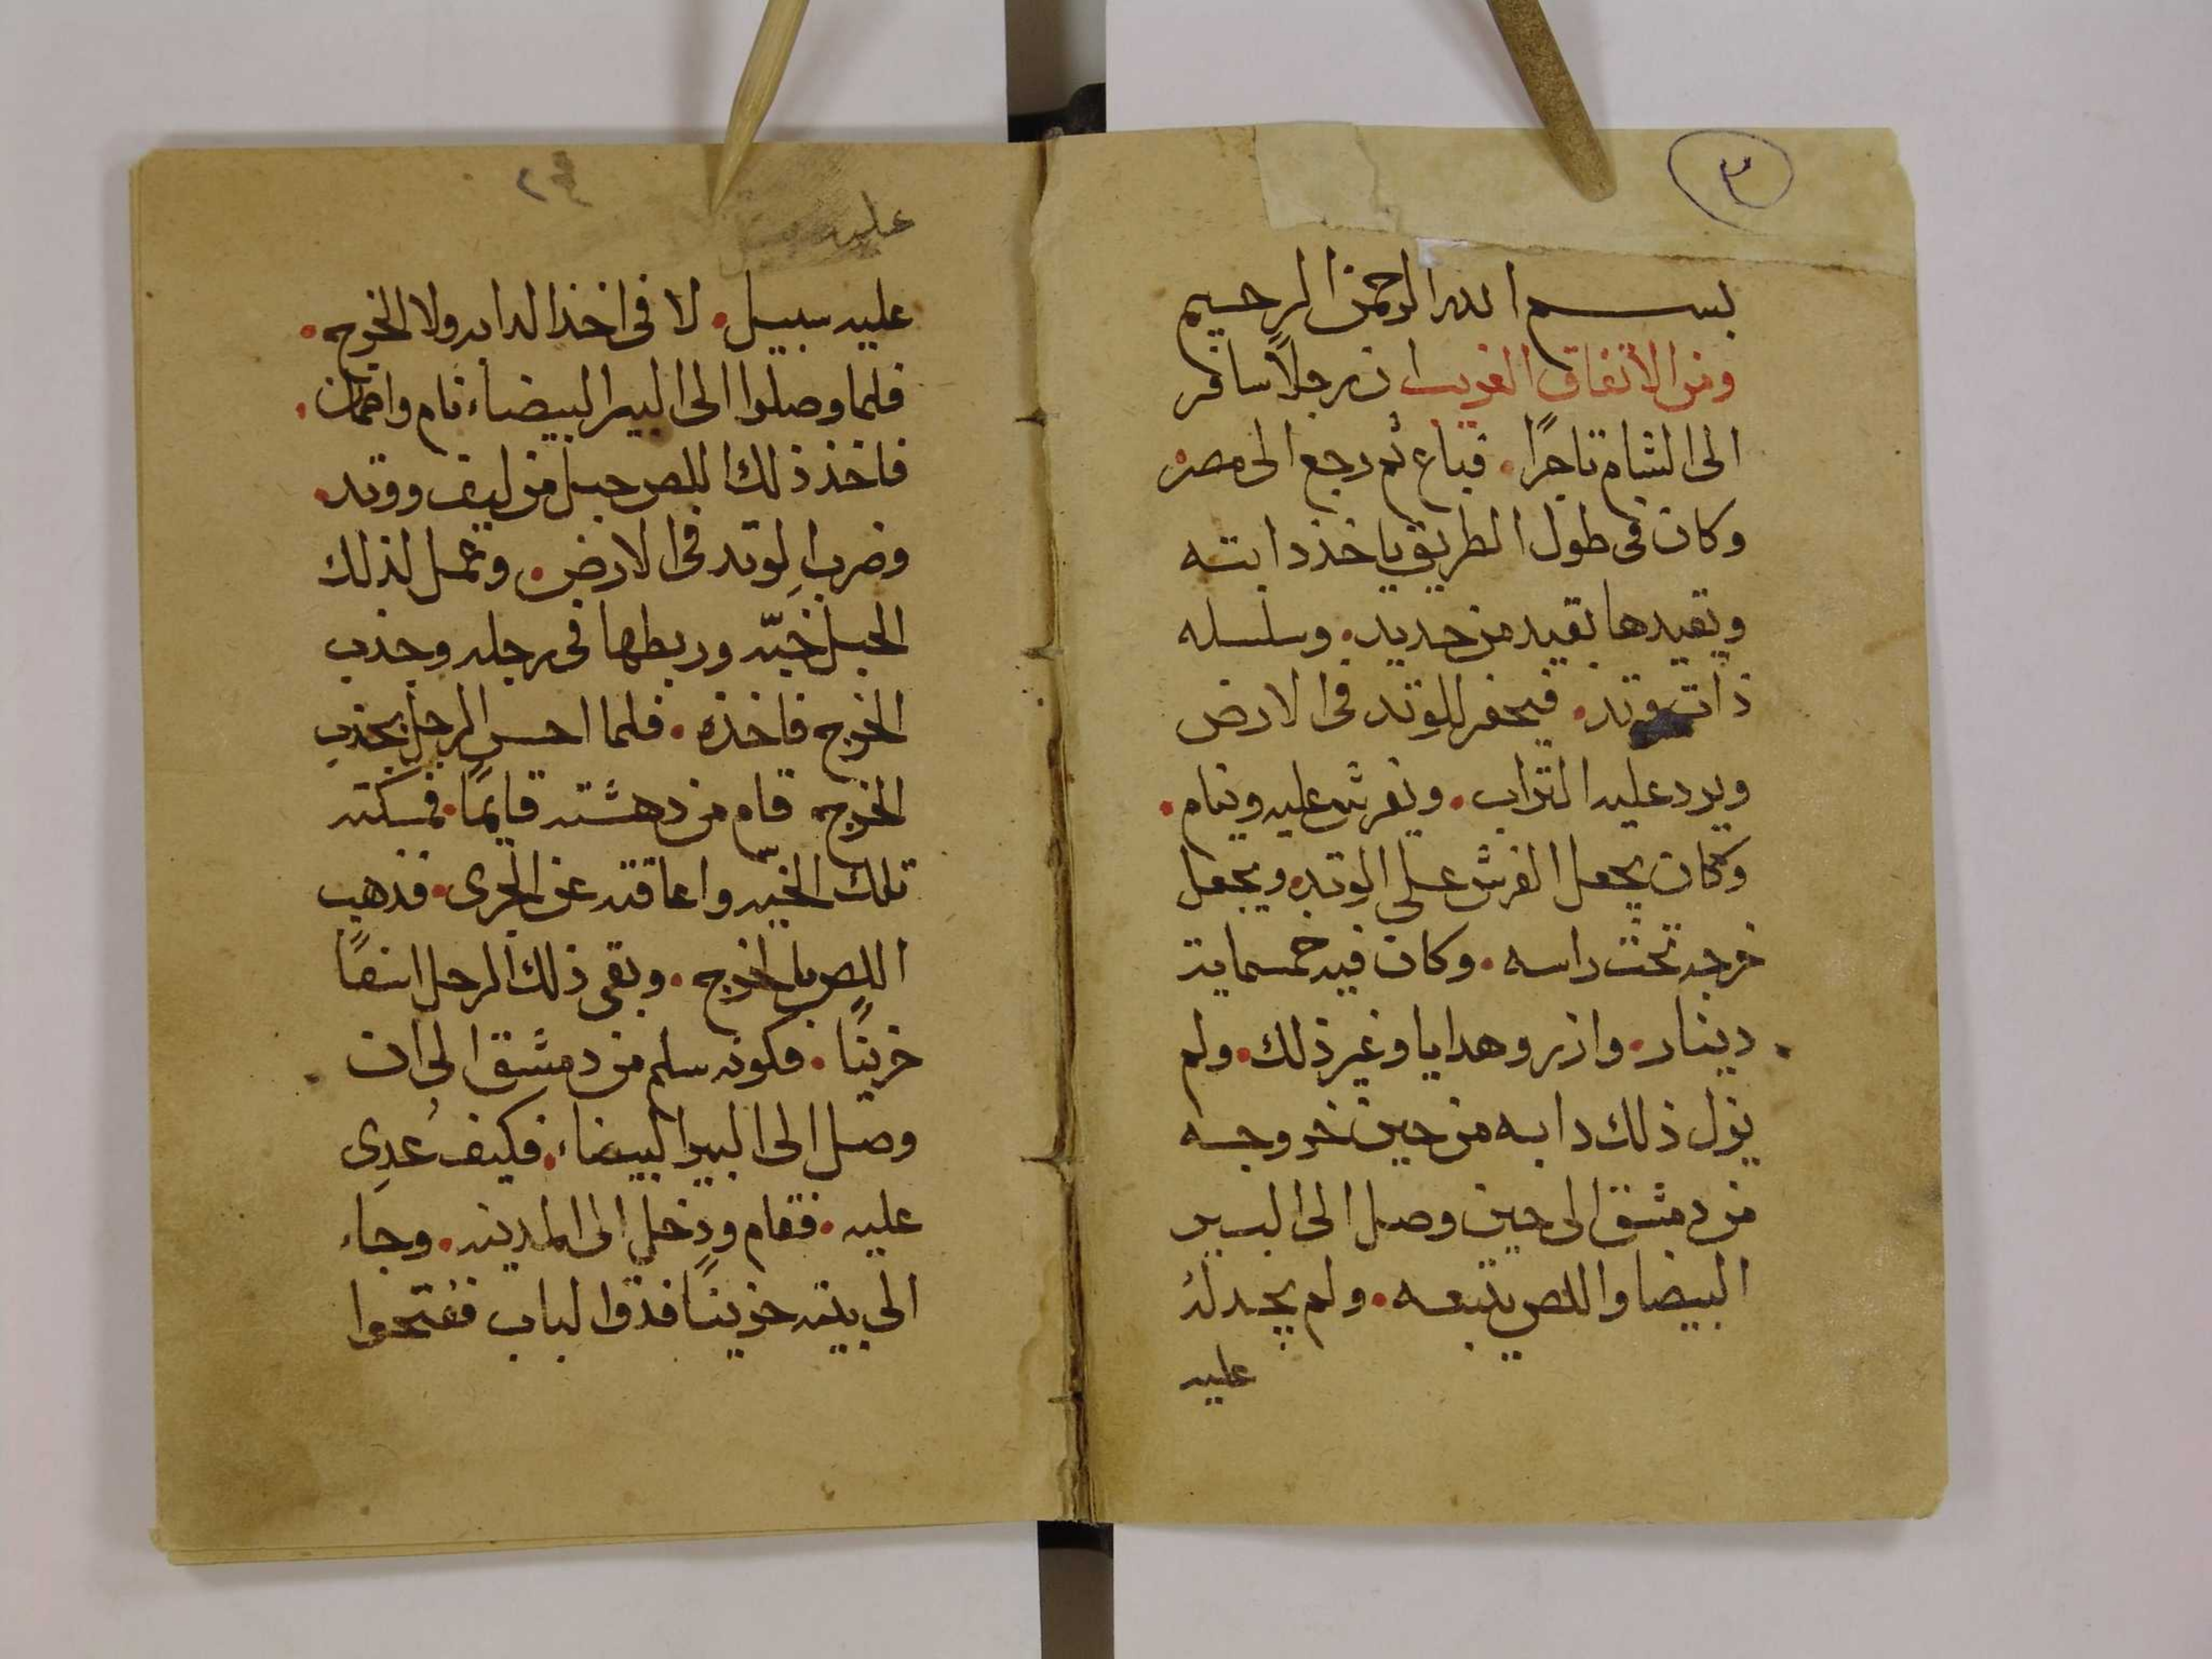 ٣
بسم الله الرحمن الرحيم
ومن الاتفاق الغريب ان رجلاً سافر
الى الشام تاجرًا. فباع ثم رجع الى مصر
وكان فى طول الطريق ياخذ دابته
ويقيدها بقيد من حديد. وسلسله
ذات وتد. فيحفر للوتد فى الارض
ويرد عليه التراب. ويفرش عليه وينام.
وكان يجعل الفرش على الوتد. ويجعل
خرجه تحت راسه. وكان فيه خمسماية
دينار. وازر وهدايا وغير ذلك. ولم
يزل ذلك دابه من حين خروجه
من دمشق الى حين وصل الى البير
البيضا واللص يتبعه. ولم يجد له
عليه
عليه
عليه سبيل. لا فى اخذ الدابه ولا الخرج.
فلما وصلوا الى البير البيضاء نام واطمان.
فاخذ ذلك اللص حبل من ليف ووتد.
وضرب الوتد فى الارض. وعمل لذلك
الحبل خيّه وربطها فى رجله وجذب
الخرج فاخذه. فلما احس الرجل بجذب
الخرج قام من دهشته قايمًا. فمسكته
تلك الخيّه واعاقته عن الجرى. فذهب
اللص بالخرج. وبقى ذلك الرجل اسفًا
حزينًا. فكونه سلم من دمشق الى ان
وصل الى البير البيضاء. فكيف عُدِى
عليه. فقام ودخل الى المدينه. وجاء
الى بيته حزينًا فدق الباب ففتحوا